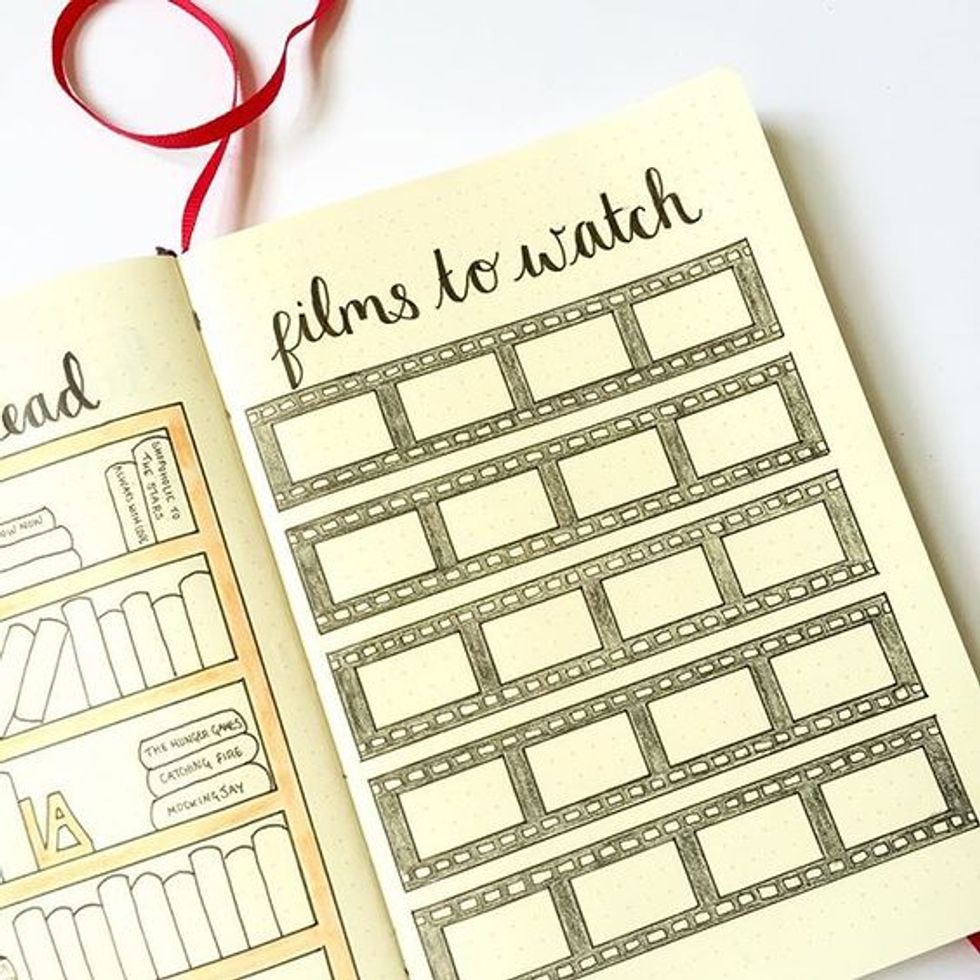 ead
SHOPAHOLIC TO
THE STARS
ALWAYS WITH LOVE
OW NOW
THE HUNGER GAMES
CATCHING FIRE
MOCKINGJAY
films to watch